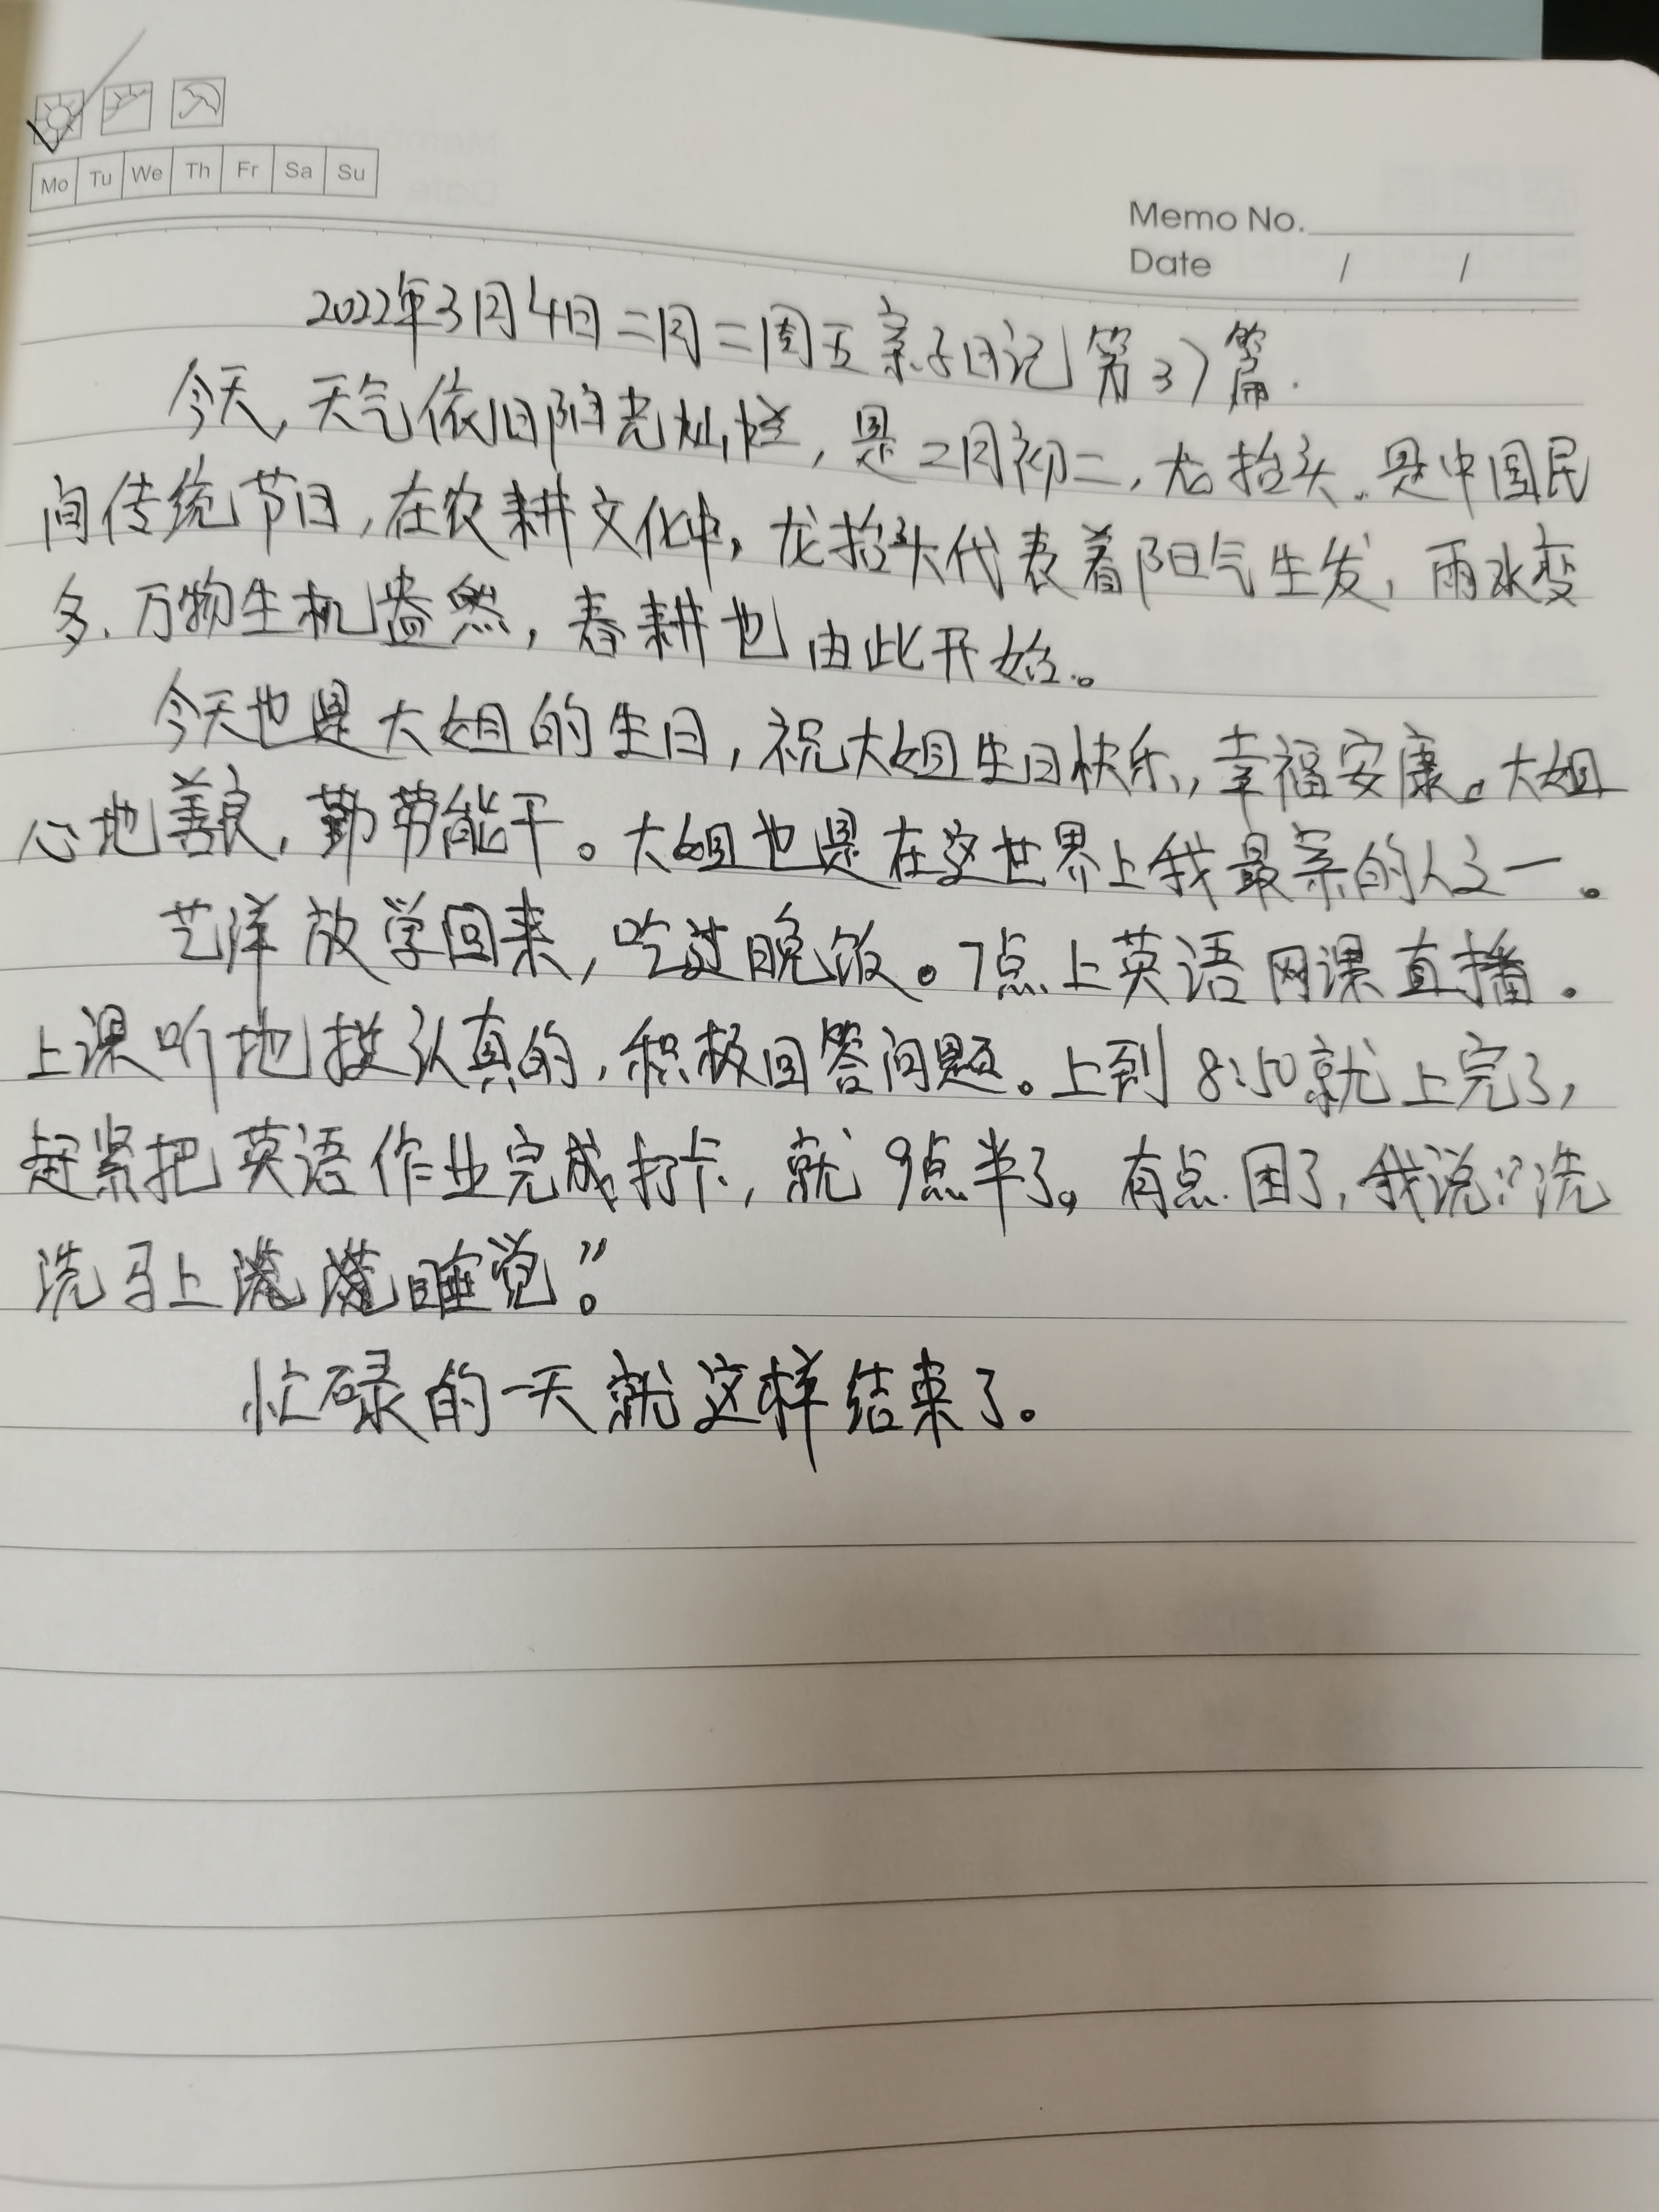 Mo Tu We Th Fr Sa Su
Memo No.
Date / /
2022年3月4日二月二周五亲子日记第37篇.
今天,天气依旧阳光灿烂,是二月初二,龙抬头.是中国民
间传统节日,在农耕文化中,龙抬头代表着阳气生发,雨水变
多.万物生机盎然,春耕也由此开始。
今天也是大姐的生日,祝大姐生日快乐,幸福安康。大姐
心地善良,勤劳能干。大姐也是在这世界上我最亲的人之一。
艺洋放学回来,吃过晚饭。7点上英语网课直播.
上课听地挺认真的,积极回答问题。上到8:50就上完了,
赶紧把英语作业完成打卡,就9点半了。有点困了,我说:“洗
洗马上睡觉”。
忙碌的一天就这样结束了。